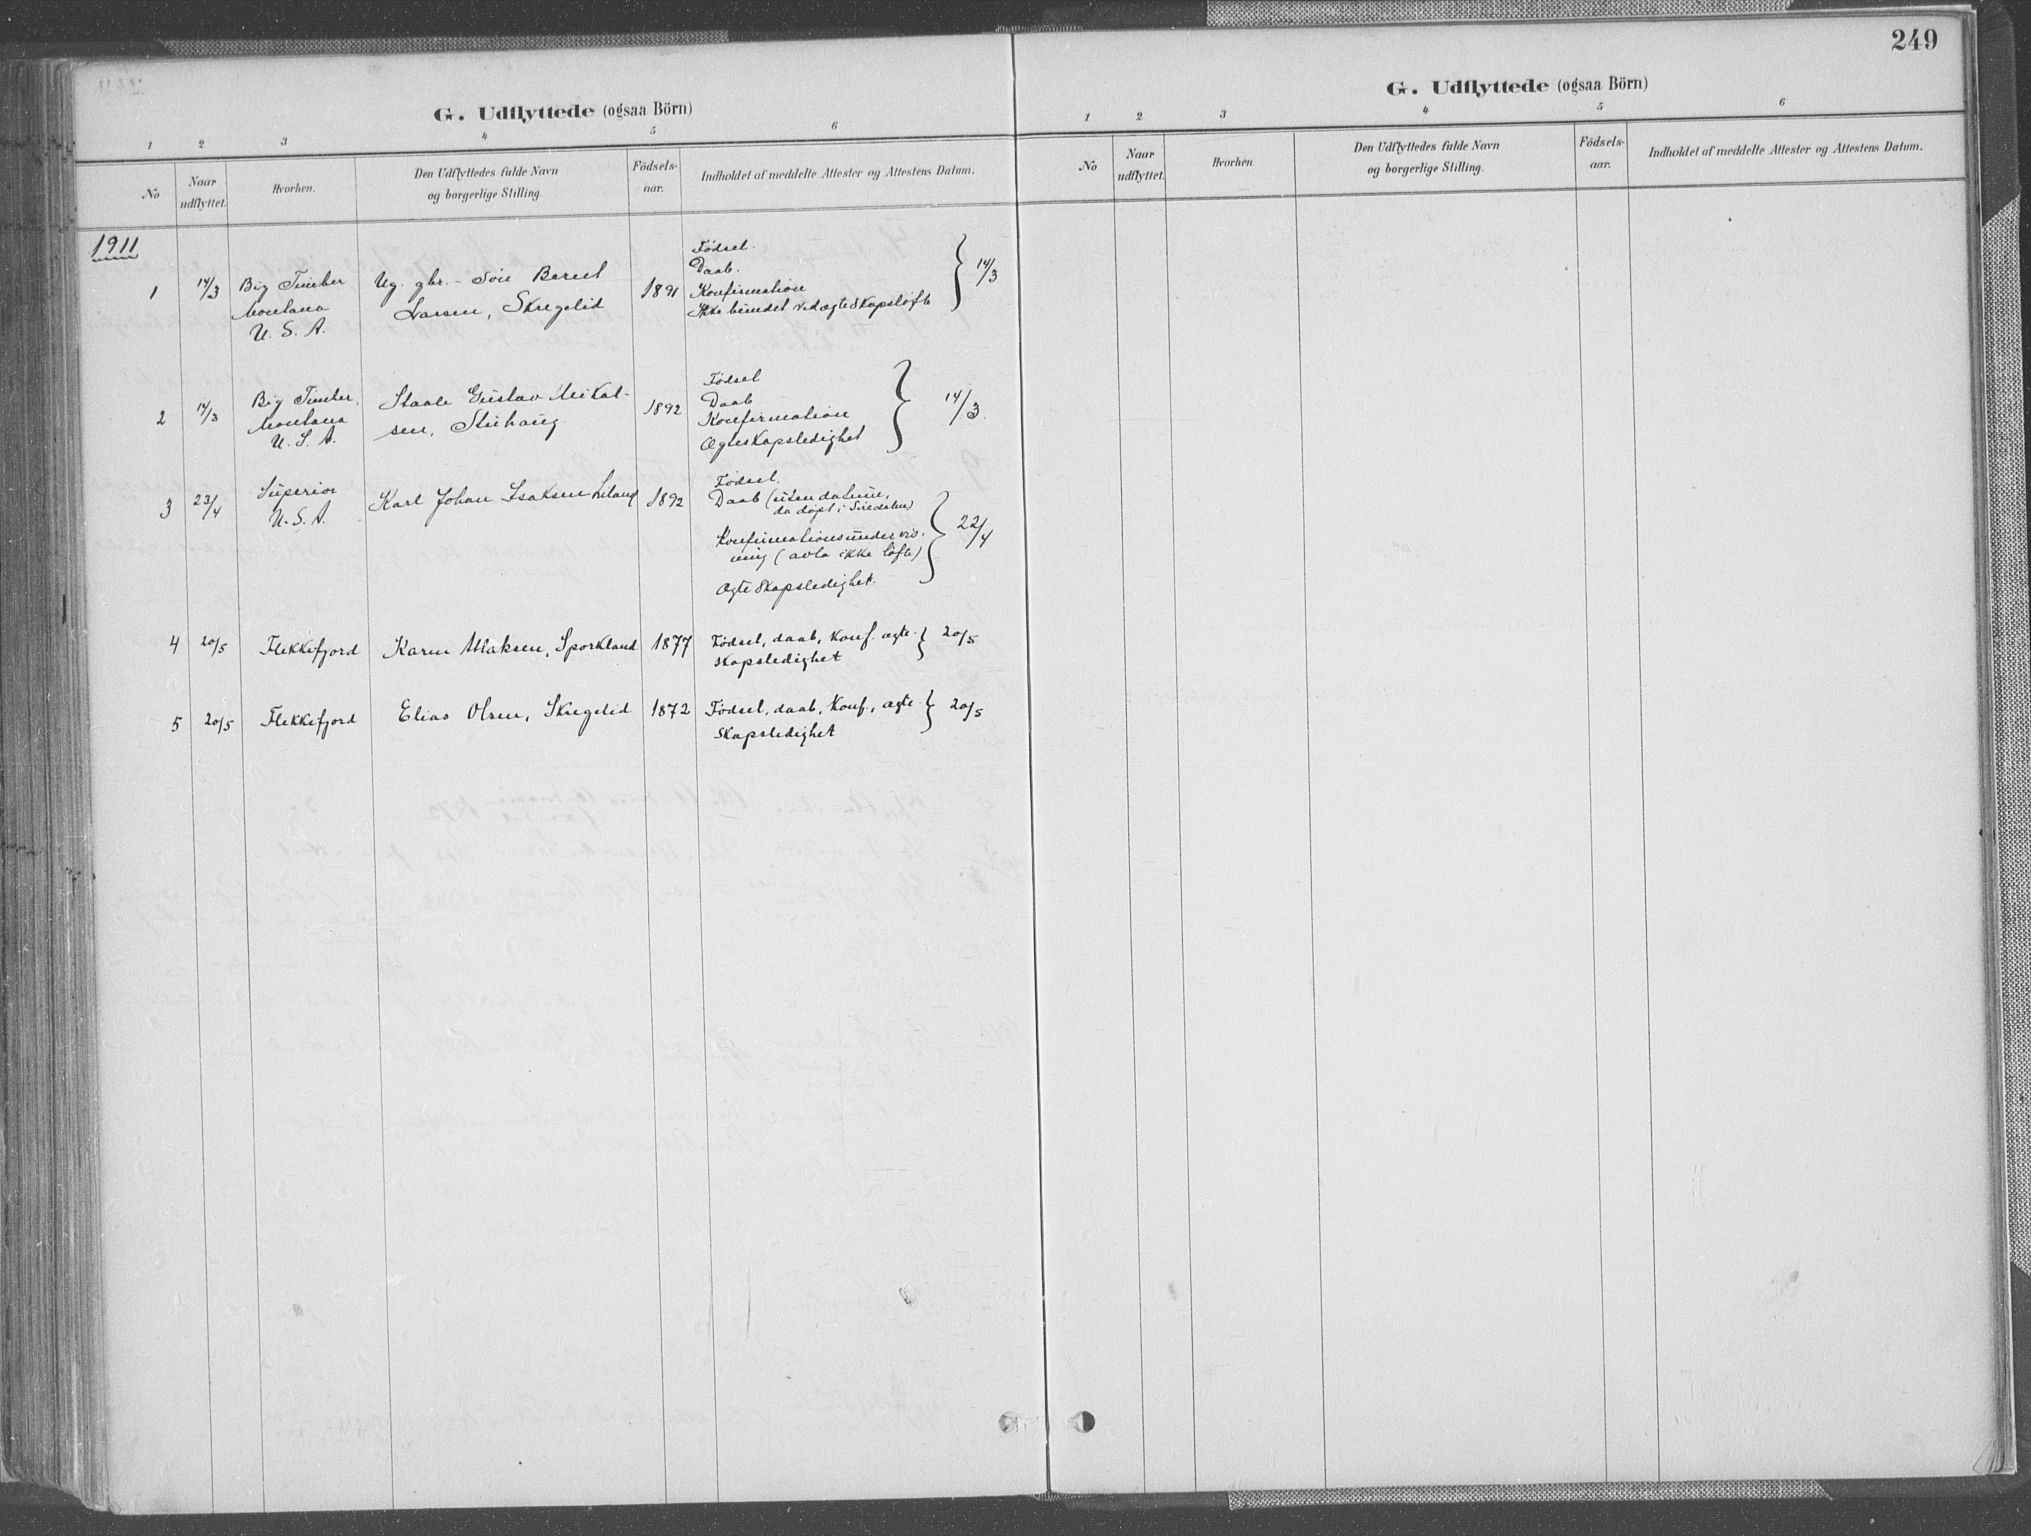 249
G. Udflyttede (ogsaa Börn)
1 2 3 4 5 6
No
Naar udflyttet.
Hvorhen.
Den Udflyttedes fulde Navn og borgerlige Stilling.
Födsels-aar.
Indholdet af meddelte Attester og Attestens Datum.
1911
1 14/3 Big Timber Montana U. S. A.
Ug. gbr. - søn Berent
Larsen, Skregelid
1891
Fødsel.
Daab.
Konfirmation
Ikke bundet ved ægteskapsløfte
14/3
2 14/3 Big Timber, Montana U. S. A.
Staale Gustav Mikal-
sen, Stuhaug
1892
Fødsel
Daab
Konfirmation
Ægteskapsledighet
14/3.
3 23/4 Superior U. S. A.
Karl Johan Isaksen
1892
Fødsel,
Daab (uten datum,
da døpt i Siredalen)
Konfirmationsundervis-
ning (avla ikke løfte)
Ægteskapsledighet.
22/4
4 20/5 Flekkefjord
Karen Sporkland
1877
Fødsel, daab, konf. ægte-
skapsledighet
20/5
5 20/5 Flekkefjord
Elias Olsen, Skregelid
1872
Fødsel, daab, konf., ægte-
skapsledighet
20/5
G. Udflyttede (ogsaa Börn)
1 2 3 4 5 6
No
Naar udflyttet.
Hvorhen
Den Udflyttedes fulde Navn og borgerlige Stilling.
Födsels-aar.
Indholdet af meddelte Attester og Attestens Datum.